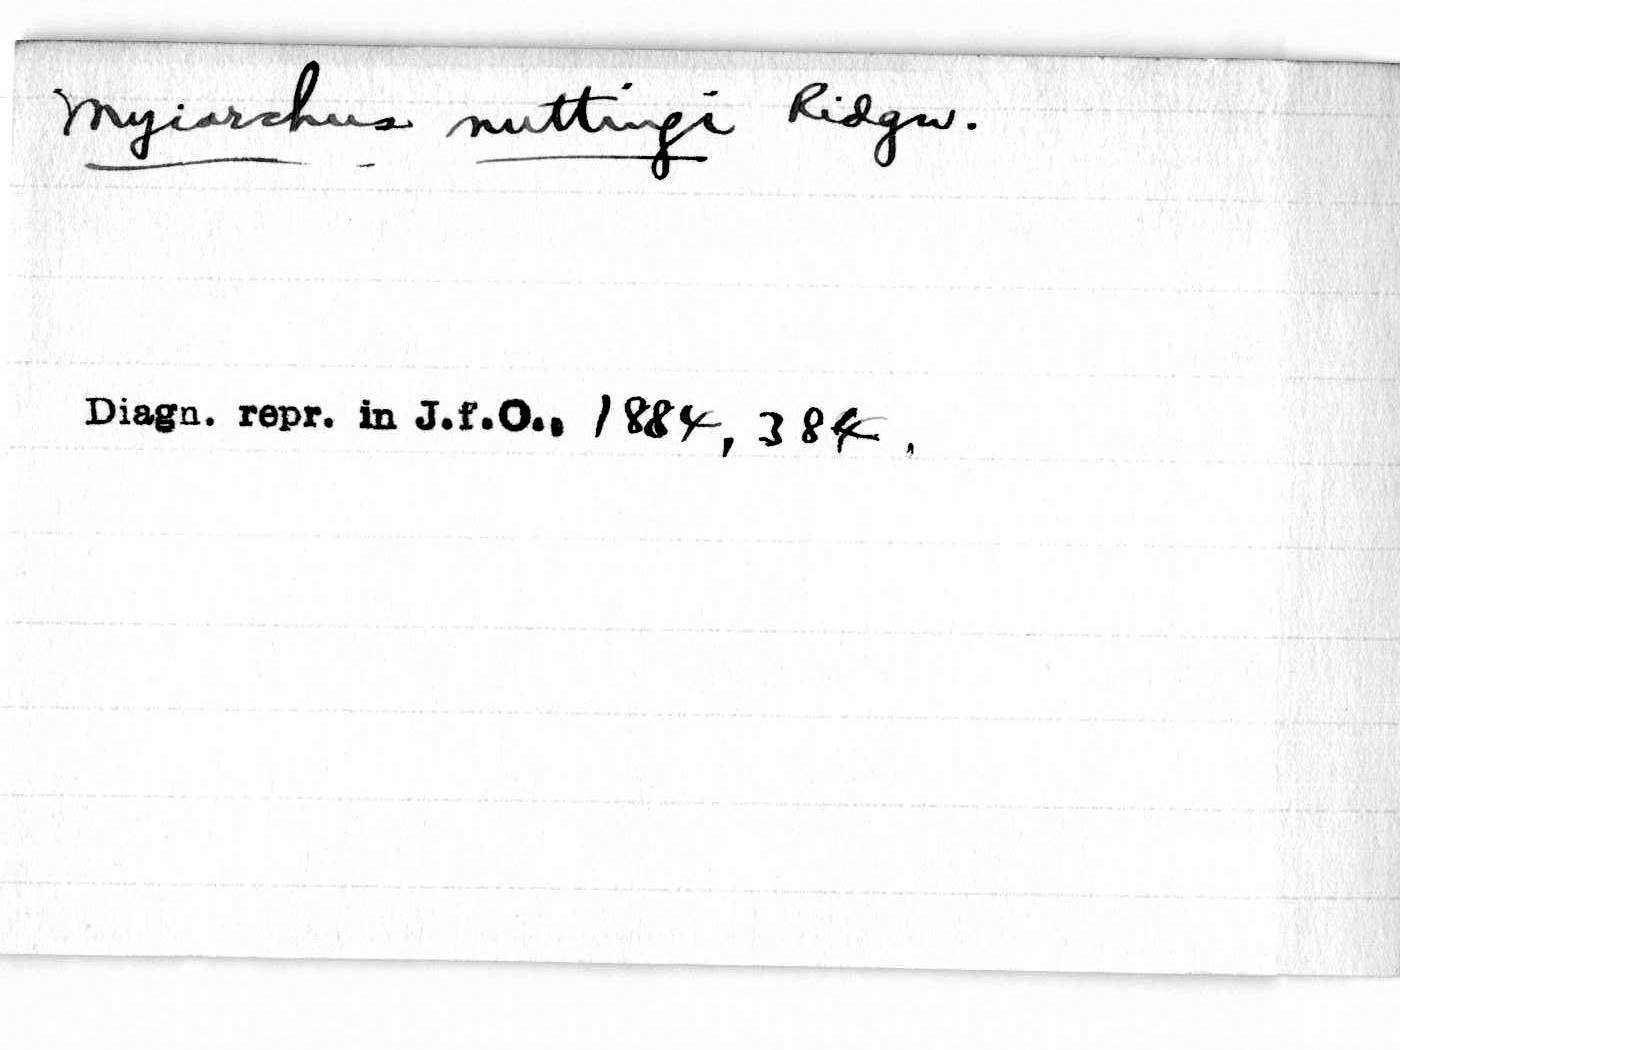 Myiarchus nuttingi Ridgw.
Diagn. repr. in J.f.O., 1884, 384.